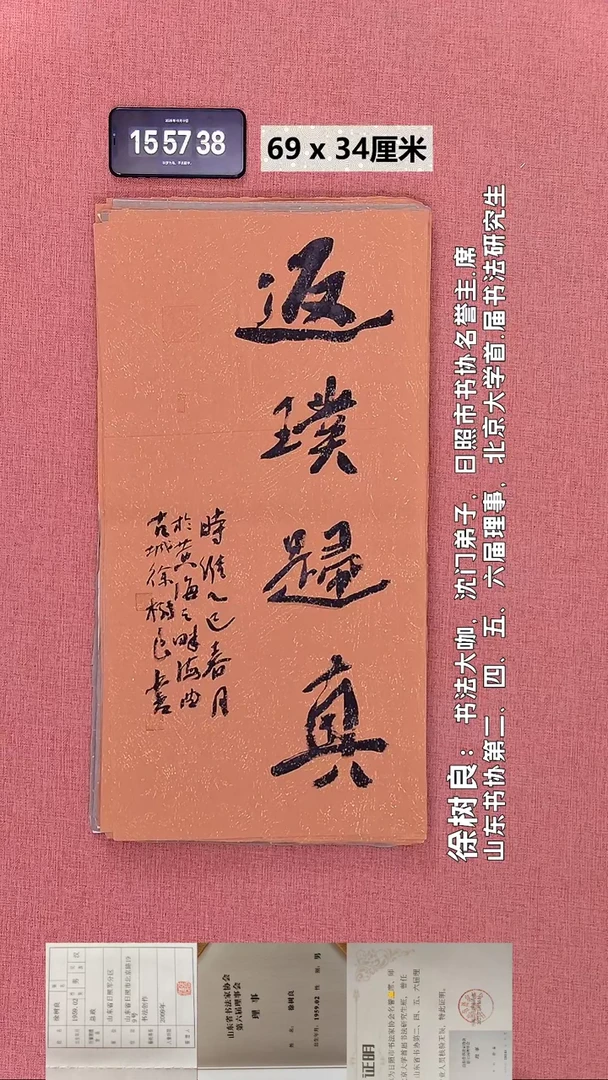 15 57 38
69 x 34厘米
返
璞
歸
真
時維乙巳春月
於黄海之畔海曲
古城徐樹良書
徐树良：书法大咖，沈门弟子，日照市书协名誉主.席
山东书协第二、四、五、六届理事，北京大学首.届书法研究生
徐树良
山东省日照军分区
书法创作
2009年
山东省书法家协会
第六届理事会
理 事
徐树良
1959.02
男
证明